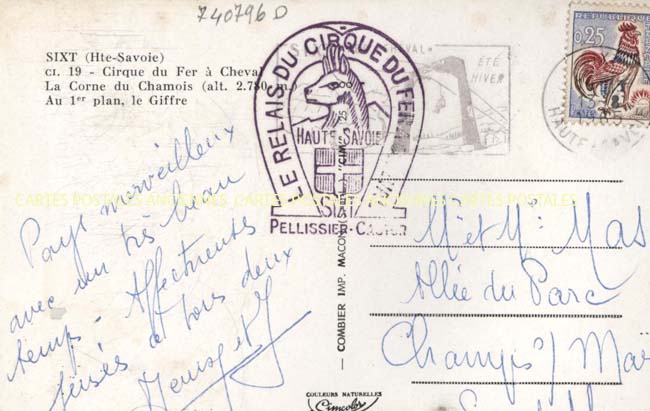 740796 D
SIXT (Hte-Savoie)
CI. 19 - Cirque du Fer à Cheval
La Corne du Chamois (alt. 2.750 m.)
Au 1er plan, le Giffre
LE RELAIS DU CIRQUE DU FER
HAUTE-SAVOIE
SIXT
PELLISSIER-CASTOR
CHEVAL
ÉTÉ
HIVER
0,25
HAUTE-SAVOIE
CARTES POSTALES ANCIENNES CARTES POSTALES ANCIENNES CARTES POSTALES
Pays merveilleux
avec un très beau
temps - Affectueuses
bises à tous deux
COMBIER IMP. MACON
COULEURS NATURELLES
Cimcolor
M. et Mme Mas
Allée du Parc
Champs s/ Mar